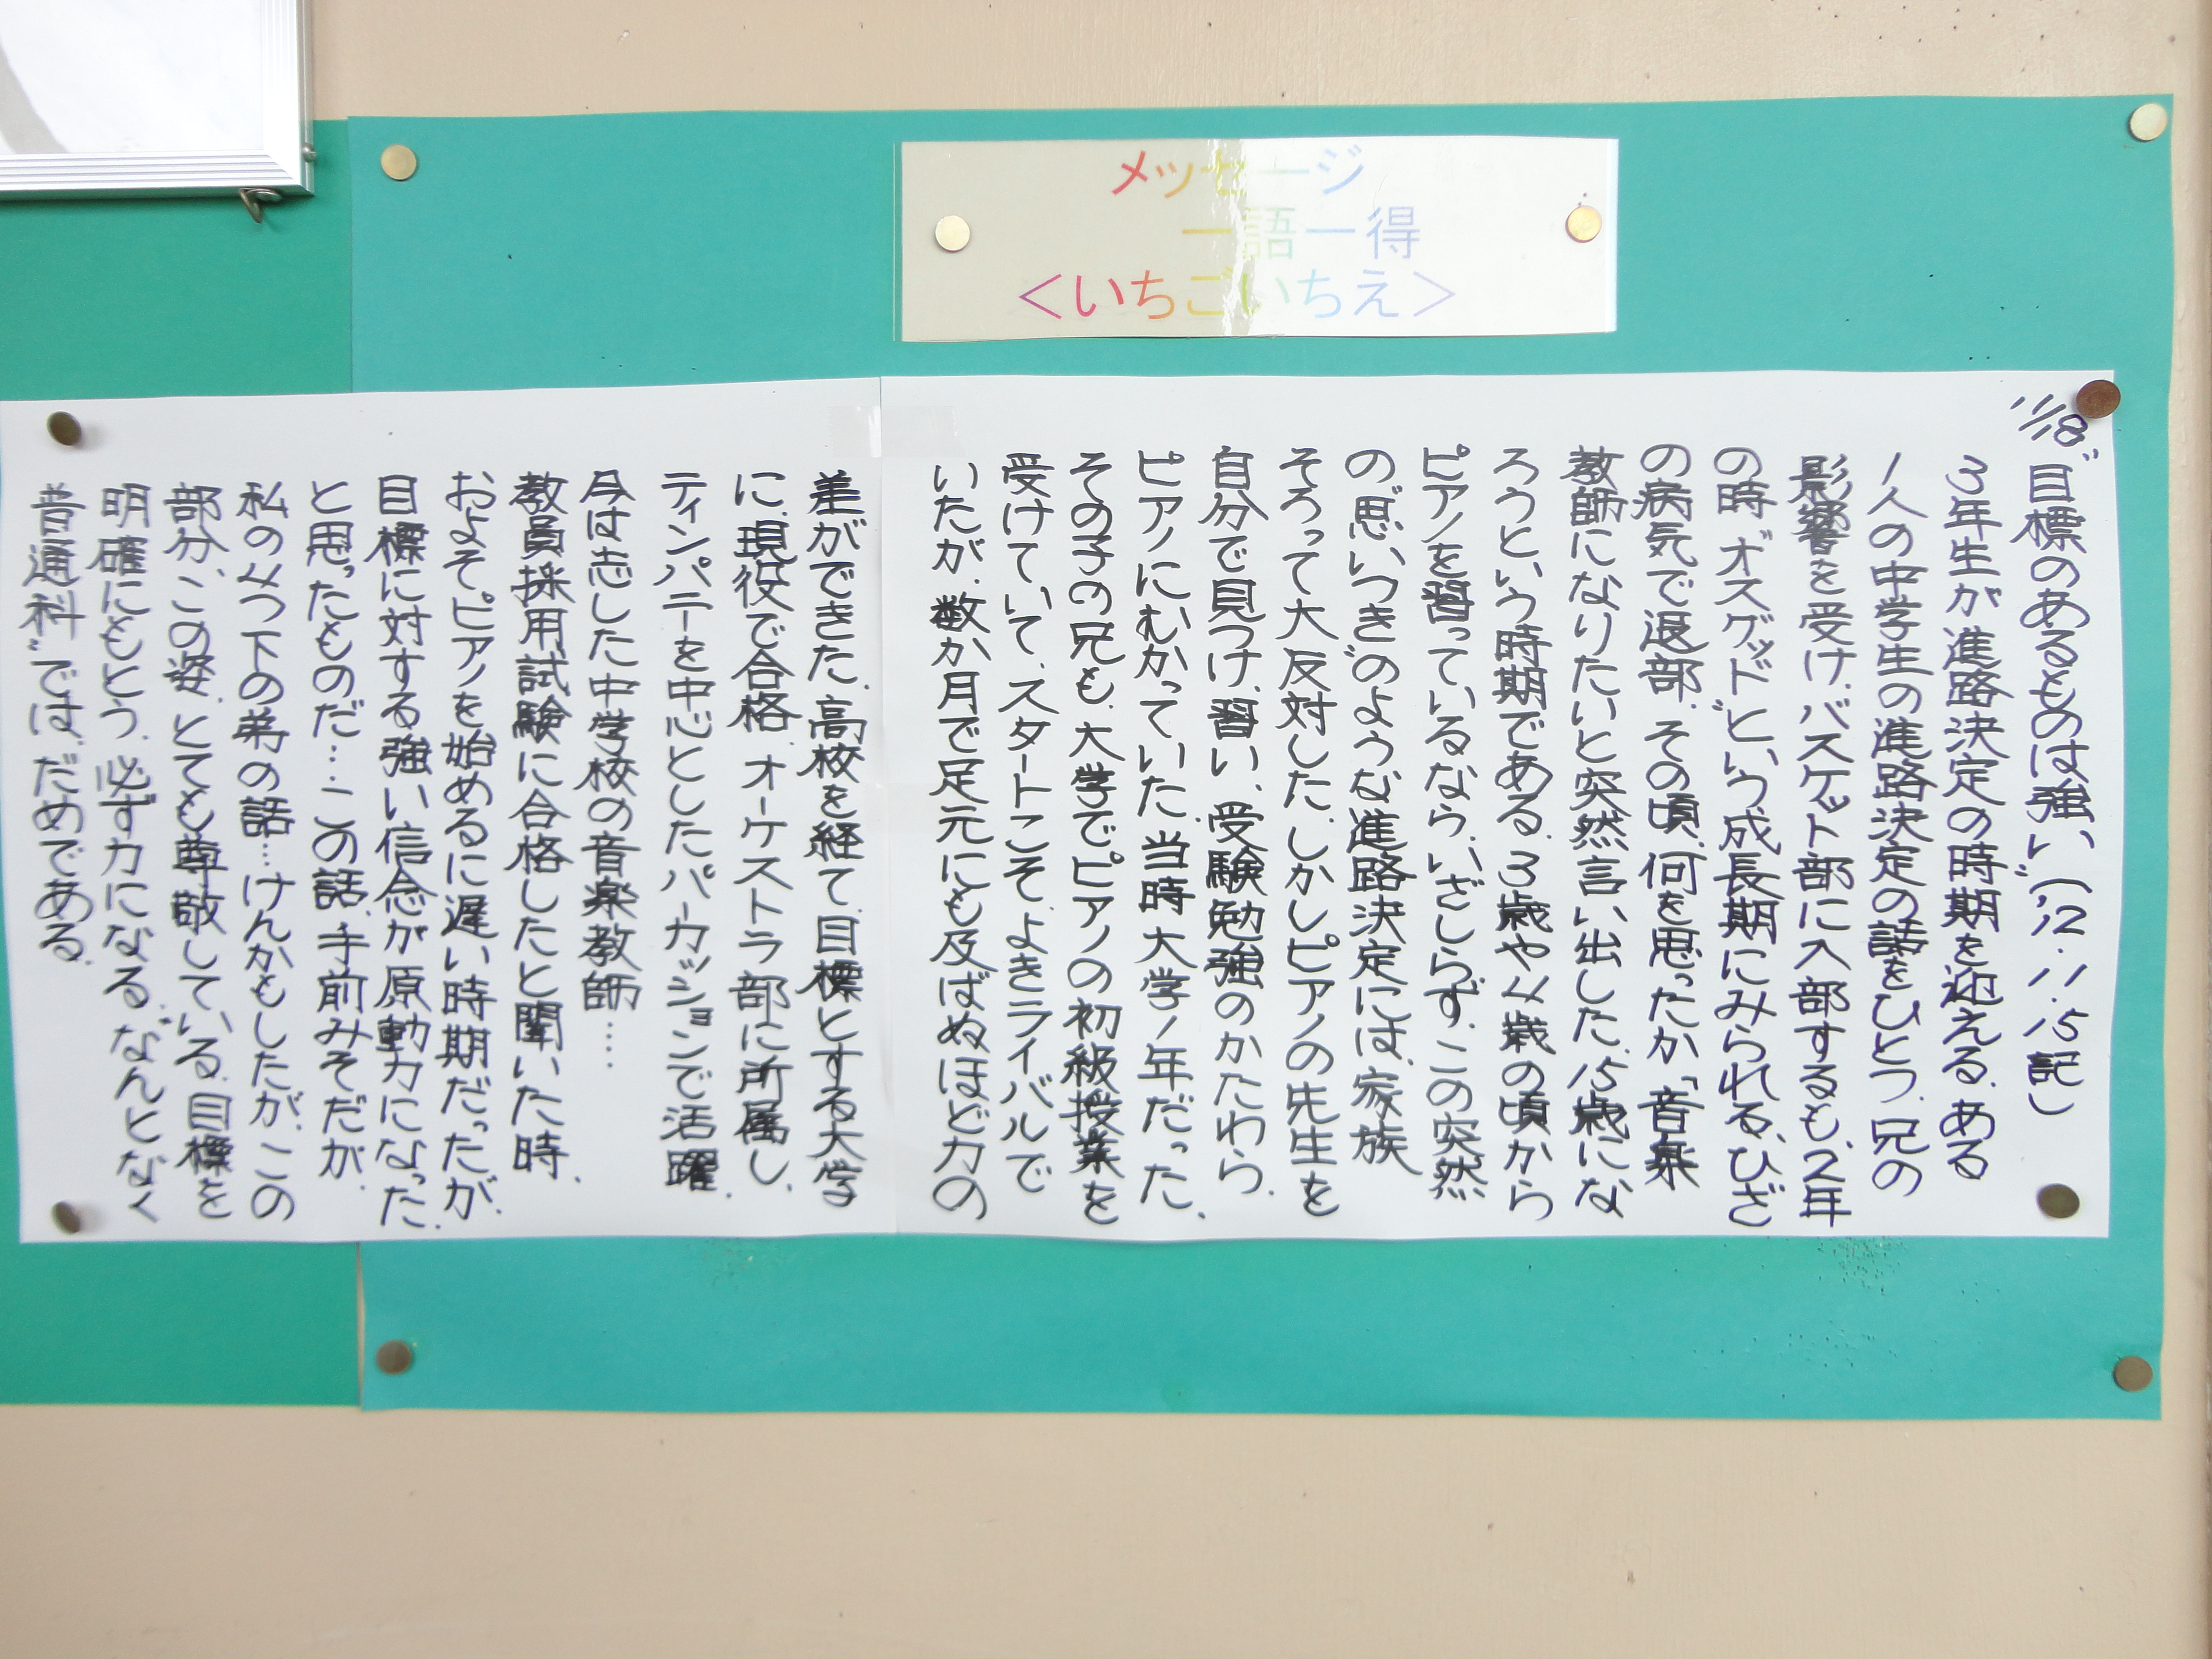 メッセージ
一語一得
<いちごいちえ>
11/18
"目標のあるものは強い" ('12.11.15記)
3年生が進路決定の時期を迎える。ある
1人の中学生の進路決定の話をひとつ。兄の
影響を受け、バスケット部に入部するも、2年
の時"オスグッド"という成長期にみられる、ひざ
の病気で退部。その頃、何を思ったか「音楽
教師になりたいと突然言い出した。15歳にな
ろうという時期である。3歳や4歳の頃から
ピアノを習っているなら、いざしらず、この突然
の"思いつき"のような進路決定には、家族
そろって大反対した。しかしピアノの先生を
自分で見つけ、習い、受験勉強のかたわら、
ピアノにむかっていた。当時大学1年だった、
その子の兄も、大学でピアノの初級授業を
受けていて、スタートこそ、よきライバルで
いたが、数か月で足元にも及ばぬほど力の
差ができた。高校を経て、目標とする大学
に、現役で合格。オーケストラ部に所属し、
ティンパニーを中心としたパーカッションで活躍。
今は志した中学校の音楽教師‥‥
教員採用試験に合格したと聞いた時、
およそピアノを始めるに遅い時期だったが、
目標に対する強い信念が原動力になった。
と思ったものだ…この話、手前みそだが、
私の4つ下の弟の話…けんかもしたが、この
部分、この姿、とても尊敬している。目標を
明確にもとう。必ず力になる。"なんとなく
普通科"では、だめである。